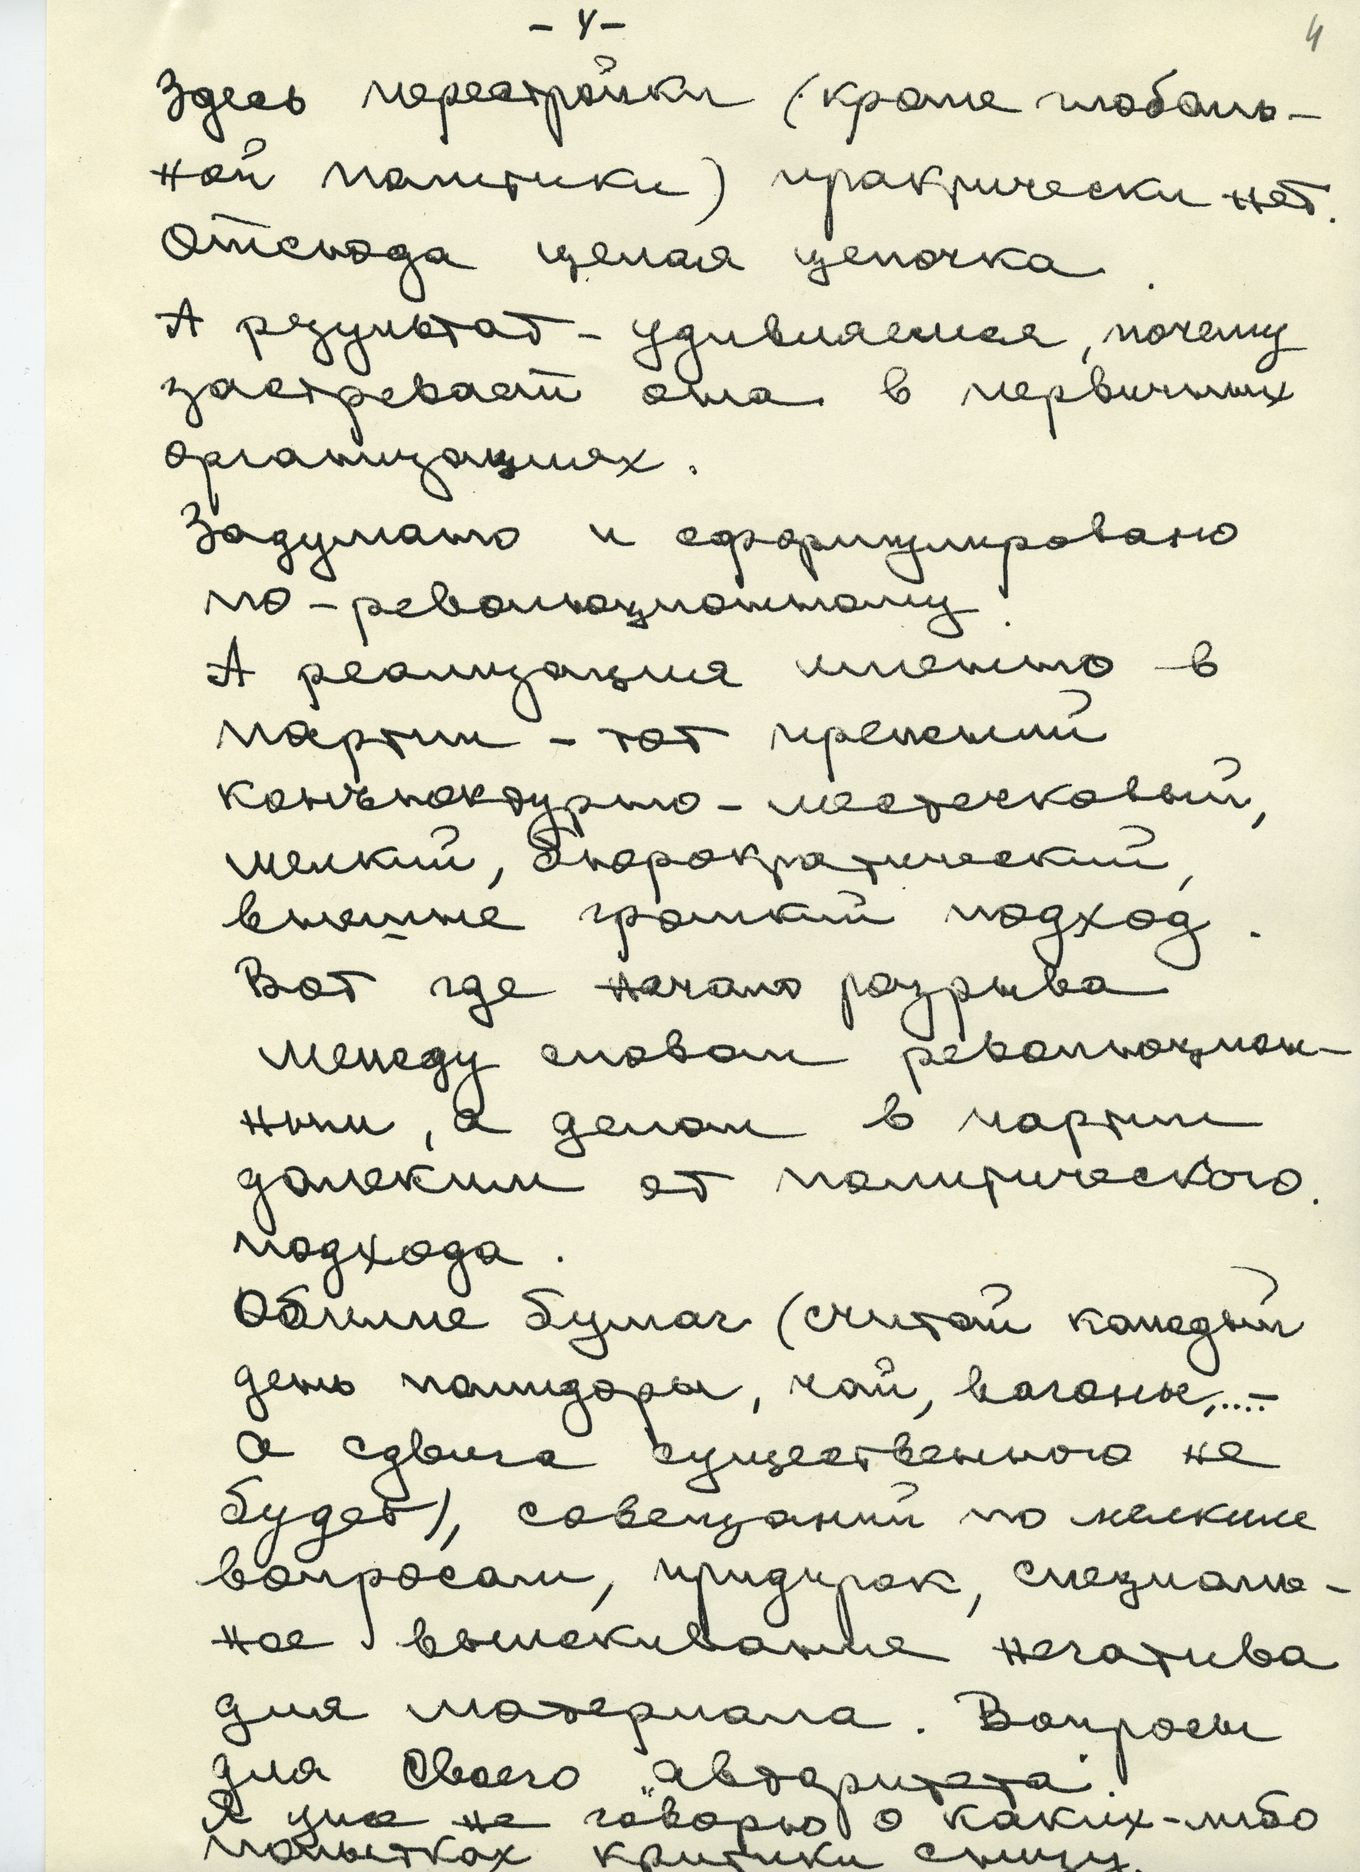 - 4 -
4
Здесь перестройки (кроме глобаль-
ной политики) практически нет.
Отсюда целая цепочка.
А результат - удивляемся, почему
застревает она в первичных
организациях.
Задумано и сформулировано
по-революционному.
А реализация именно в
партии - тот прежний
конъюнктурно-местечковый,
мелкий, бюрократический,
внешне громкий подход.
Вот где начало разрыва
между словом революцион-
ным, а делом в партии
далеким от политического
подхода.
Обилие бумаг (считай каждый
день помидоры, чай, вагоны,....-
а сдвига существенного не
будет), совещаний по мелким
вопросам, придирок, специаль-
ное выискивание негатива
для материала. Вопросы
для своего „авторитета".
Я уже не говорю о каких-либо
попытках критики снизу.